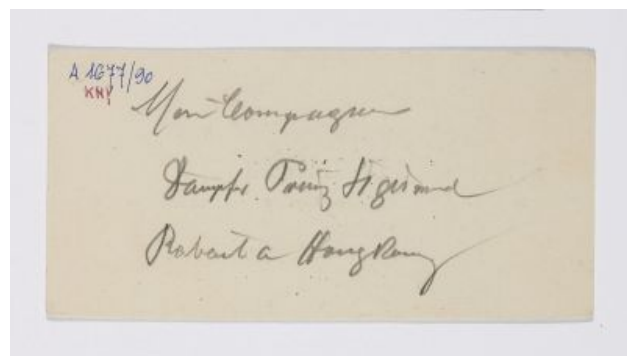 A 1677/90
KHY
Mon Compagnon
Dampfr. Prinz Sigismund
Rabaul a Hong Kong